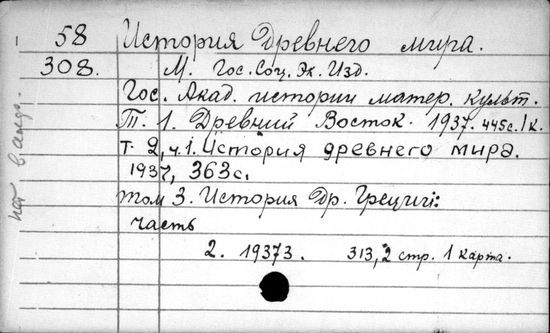 58 История Древнего мира.
308. М. Гос. Соц. Эк. Изд.
Гос. Акад. истории матер. культ.
Т. 1. Древний Восток. 1937. 445с. 1к.
т. 2, ч. 1. История древнего мира.
1937, 363 с.
том 3. История Др. Греции:
часть
2. 1937г. 313,2 стр. 1 карта.